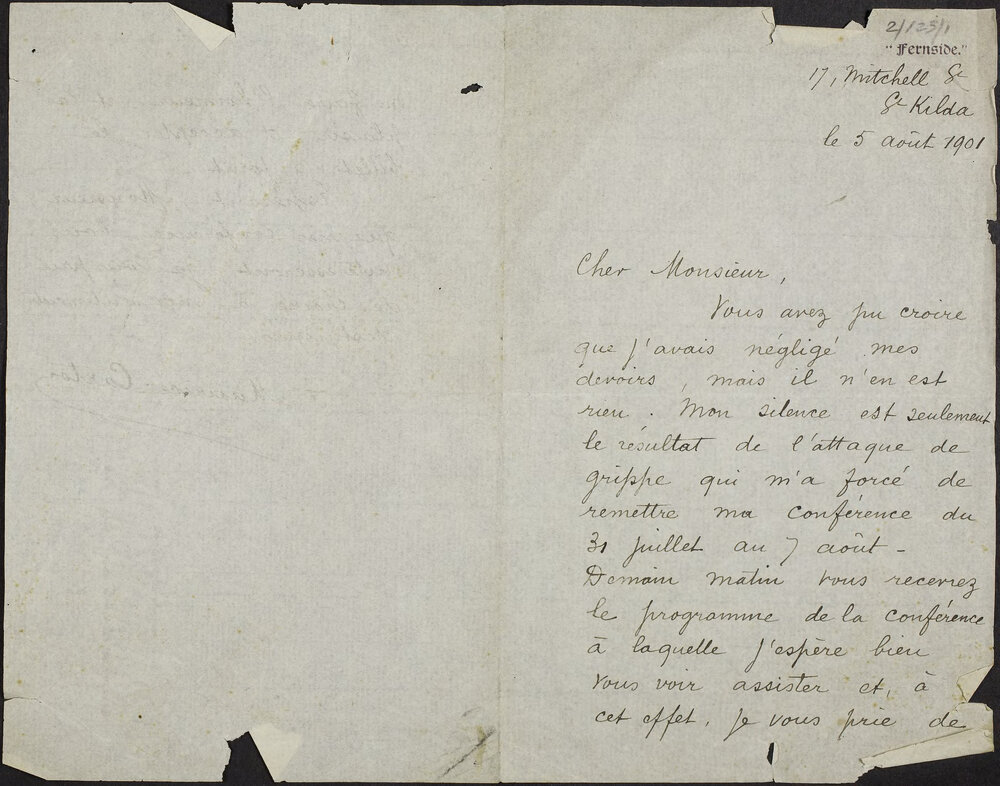 2/125/1
"Fernside."
17, Mitchell St
St Kilda
le 5 août 1901
Cher Monsieur,
Vous avez pu croire
que j'avais négligé mes
devoirs, mais il n'en est
rien. Mon silence est seulement
le résultat de l'attaque de
grippe qui m'a forcé de
remettre ma conférence du
31 juillet au 7 août -
Demain matin vous recevrez
le programme de la conférence
à laquelle j'espère bien
vous voir assister et, à
cet effet, je vous prie de